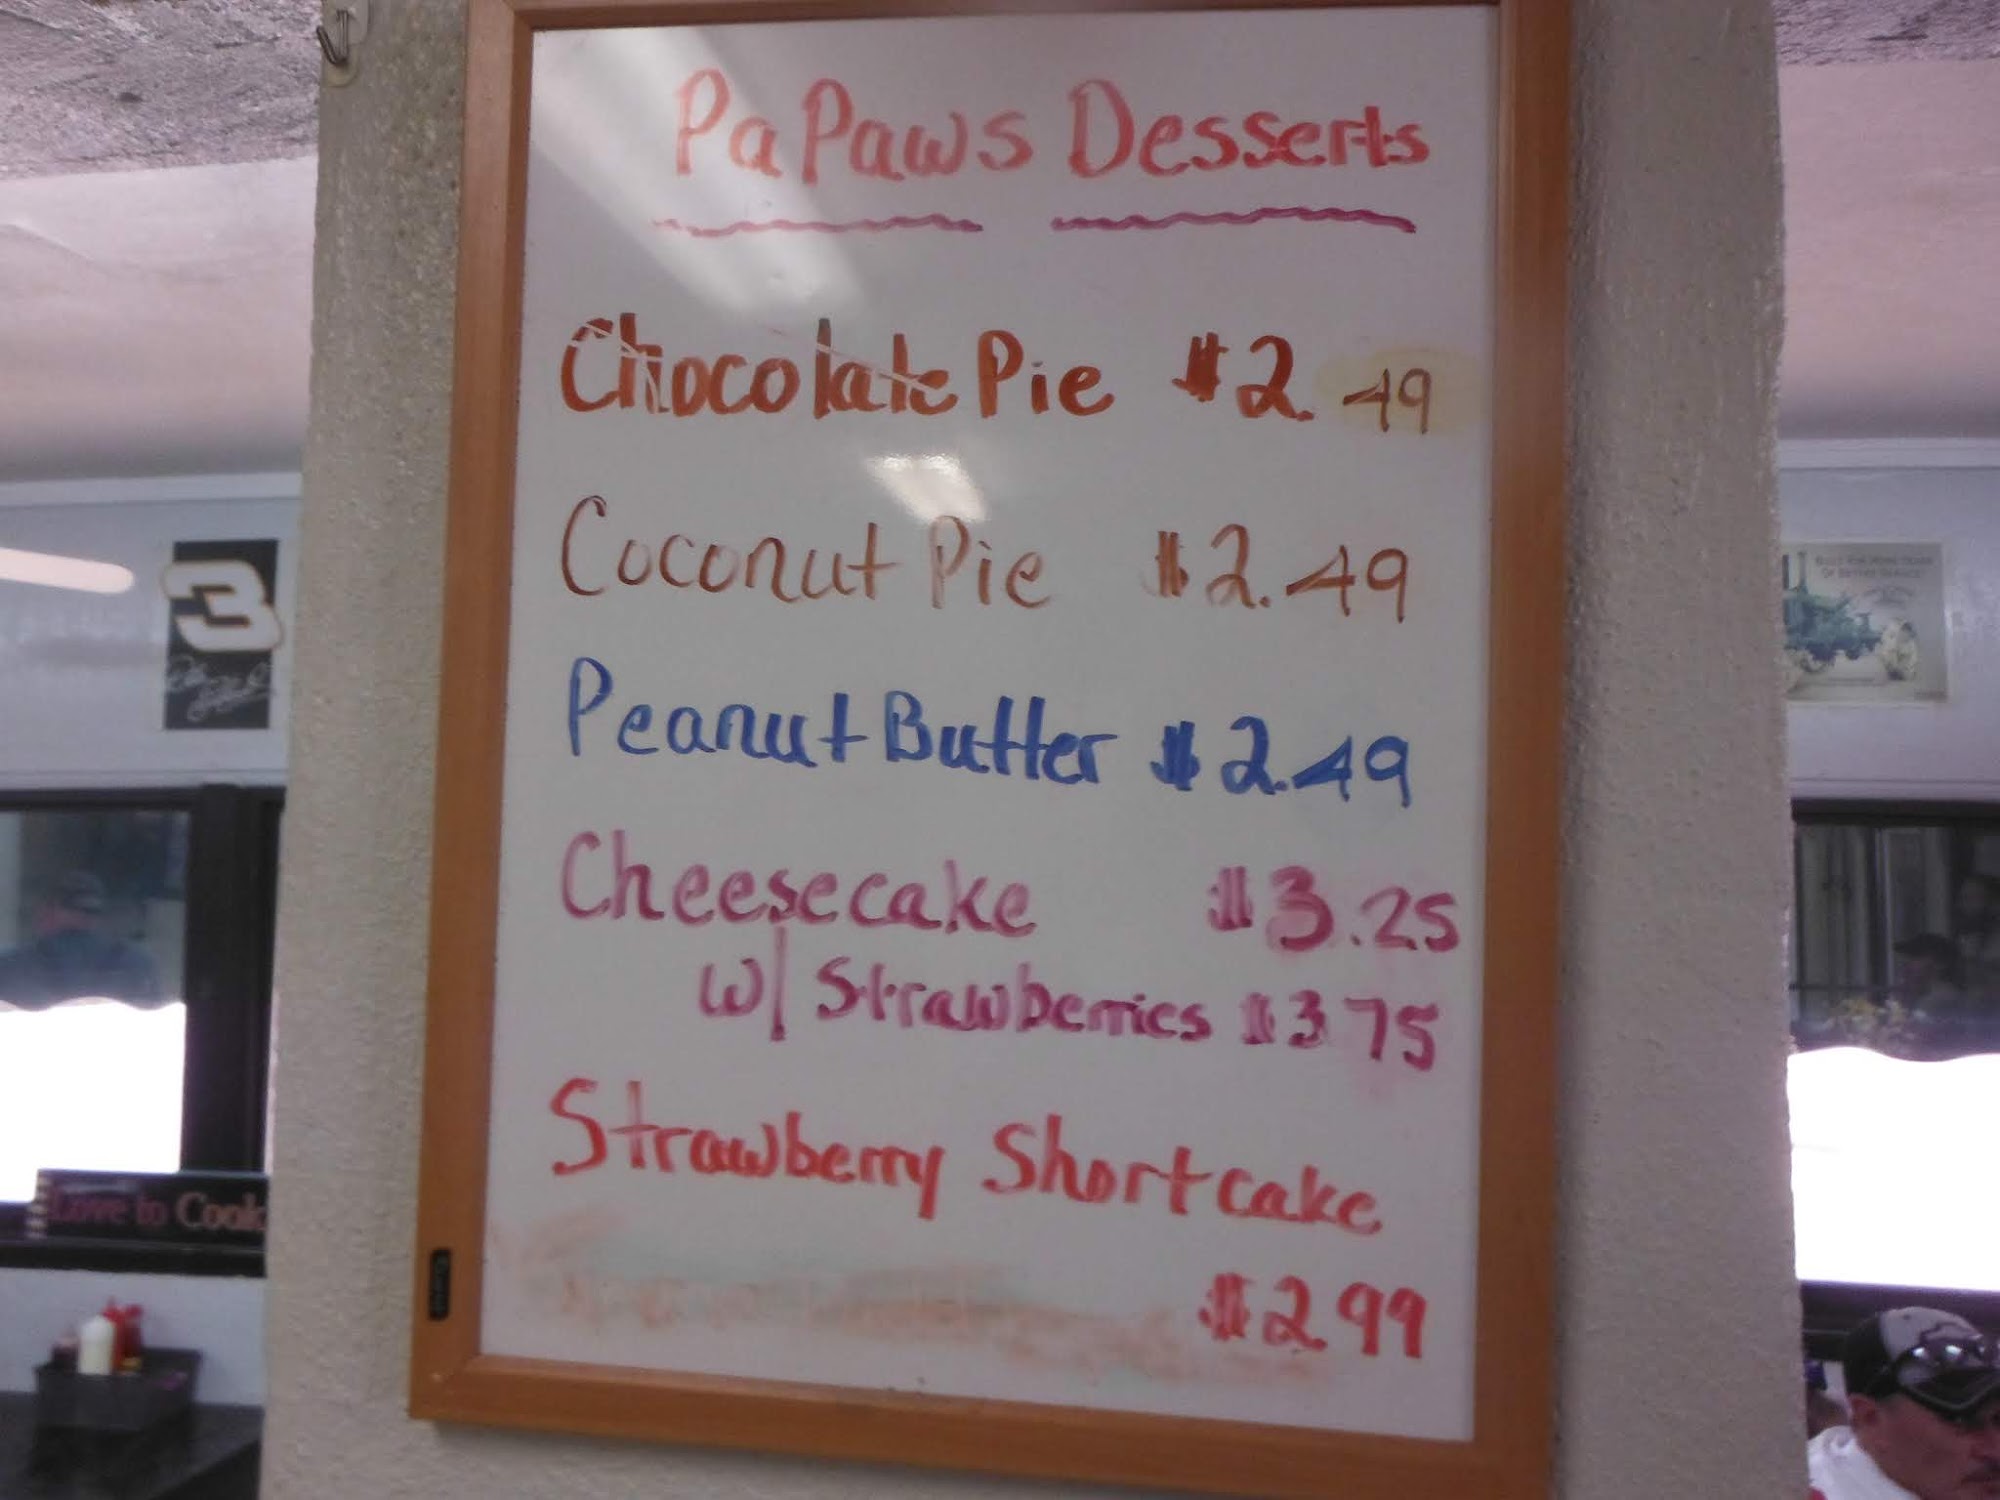 PaPaws Desserts
Chocolate Pie $2.49
Coconut Pie $2.49
Peanut Butter $2.49
Cheesecake $3.25
w/ Strawberries $3 75
Strawberry Shortcake
$2.99
3
Love to Cook